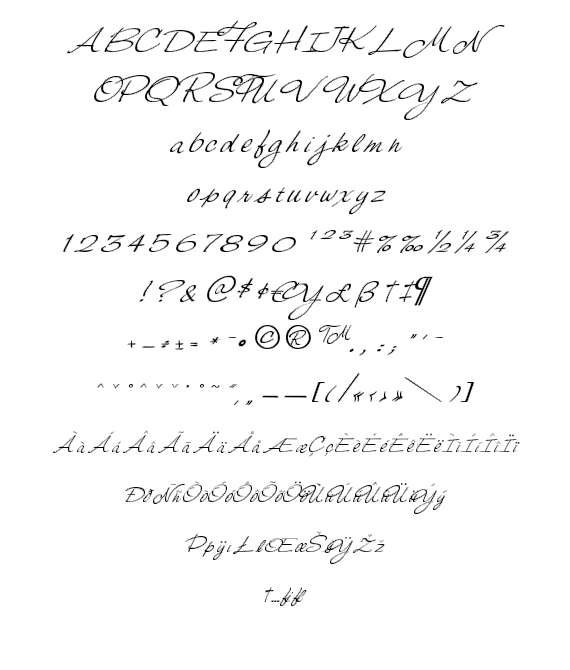 ABCDEFGHIJKLMN
OPQRSTUVWXYZ
abcdefghijklmn
opqrstuvwxyz
1234567890 ¹²³#%‰½¼¾
!?&@$¢€¥£ß†‡¶
+−≠±= *¯•©®™.,:; "'-
[(/«‹›»\)]
ÀàÁáÂâÃãÄäÅåÆæÇçÈèÉéÊêËëÌìÍíÎîÏï
ÐðÑñÒòÓóÔôÕõÖöÙùÚúÛûÜüÝý
ÞþÿıŁłŒœŠšŸŽž
†…fifl